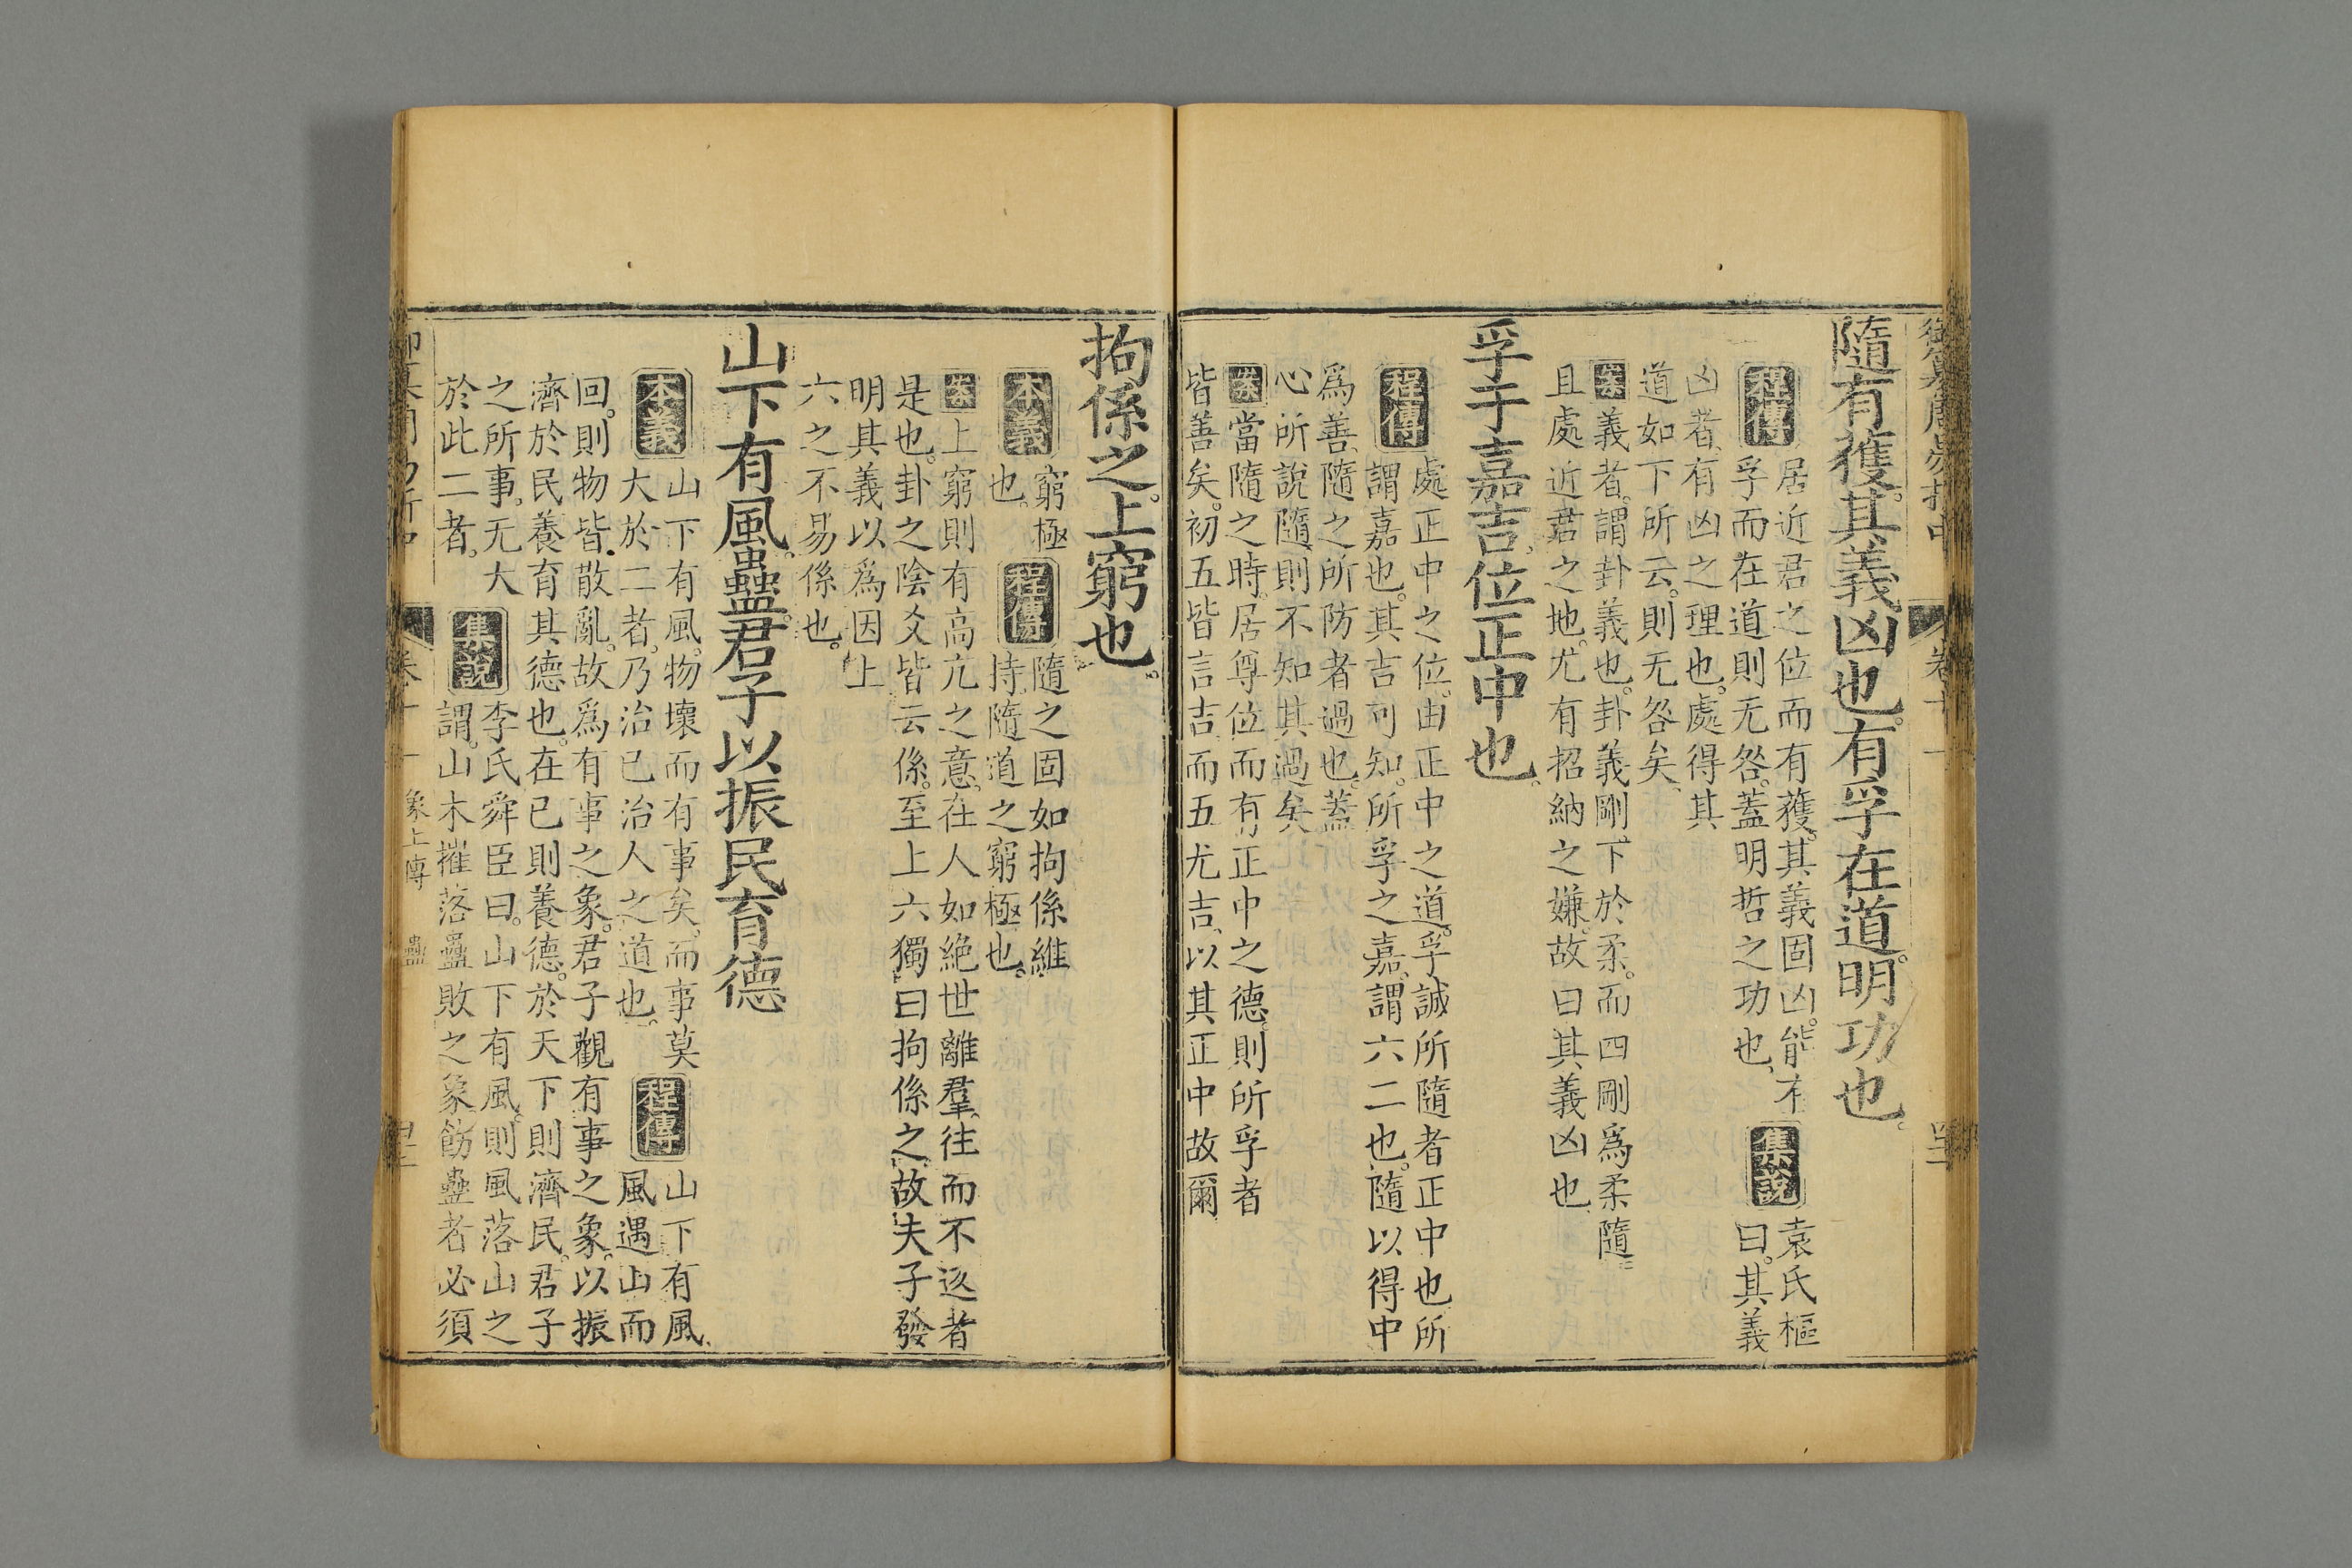 隨有獲其義凶也有孚在道明功也
程傳
居近君之位而有獲其義固凶能有
孚而在道則无咎蓋明哲之功也
集說
袁氏樞
曰其義
凶者有凶之理也處得其
道如下所云則无咎矣
案義者謂卦義也卦義剛下於柔而四剛為柔隨
且處近君之地尤有招納之嫌故曰其義凶也
孚于嘉吉位正中也
程傳
處正中之位由正中之道孚誠所隨者正中也所
謂嘉也其吉可知所孚之嘉謂六二也隨以得中
為善隨之所防者過也蓋
心所說隨則不知其過矣
案當隨之時居尊位而有正中之德則所孚者
皆善矣初五皆言吉而五尤吉以其正中故爾
拘係之上窮也
本義
窮極
也
程傳
隨之固如拘係維
持隨道之窮極也
案上窮則有高亢之意在人如絶世離羣往而不返者
是也卦之陰爻皆云係至上六獨曰拘係之故夫子發
明其義以為因上
六之不易係也
山下有風蠱君子以振民育德
本義
山下有風物壞而有事矣而事莫
大於二者乃治己治人之道也
程傳
山下有風
風遇山而
回則物皆散亂故為有事之象君子觀有事之象以振
濟於民養育其德也在己則養德於天下則濟民君子
之所事无大
於此二者
集說
李氏舜臣曰山下有風則風落山之
謂山木摧落蠱敗之象飭蠱者必須
卷十一
象上傳
蠱